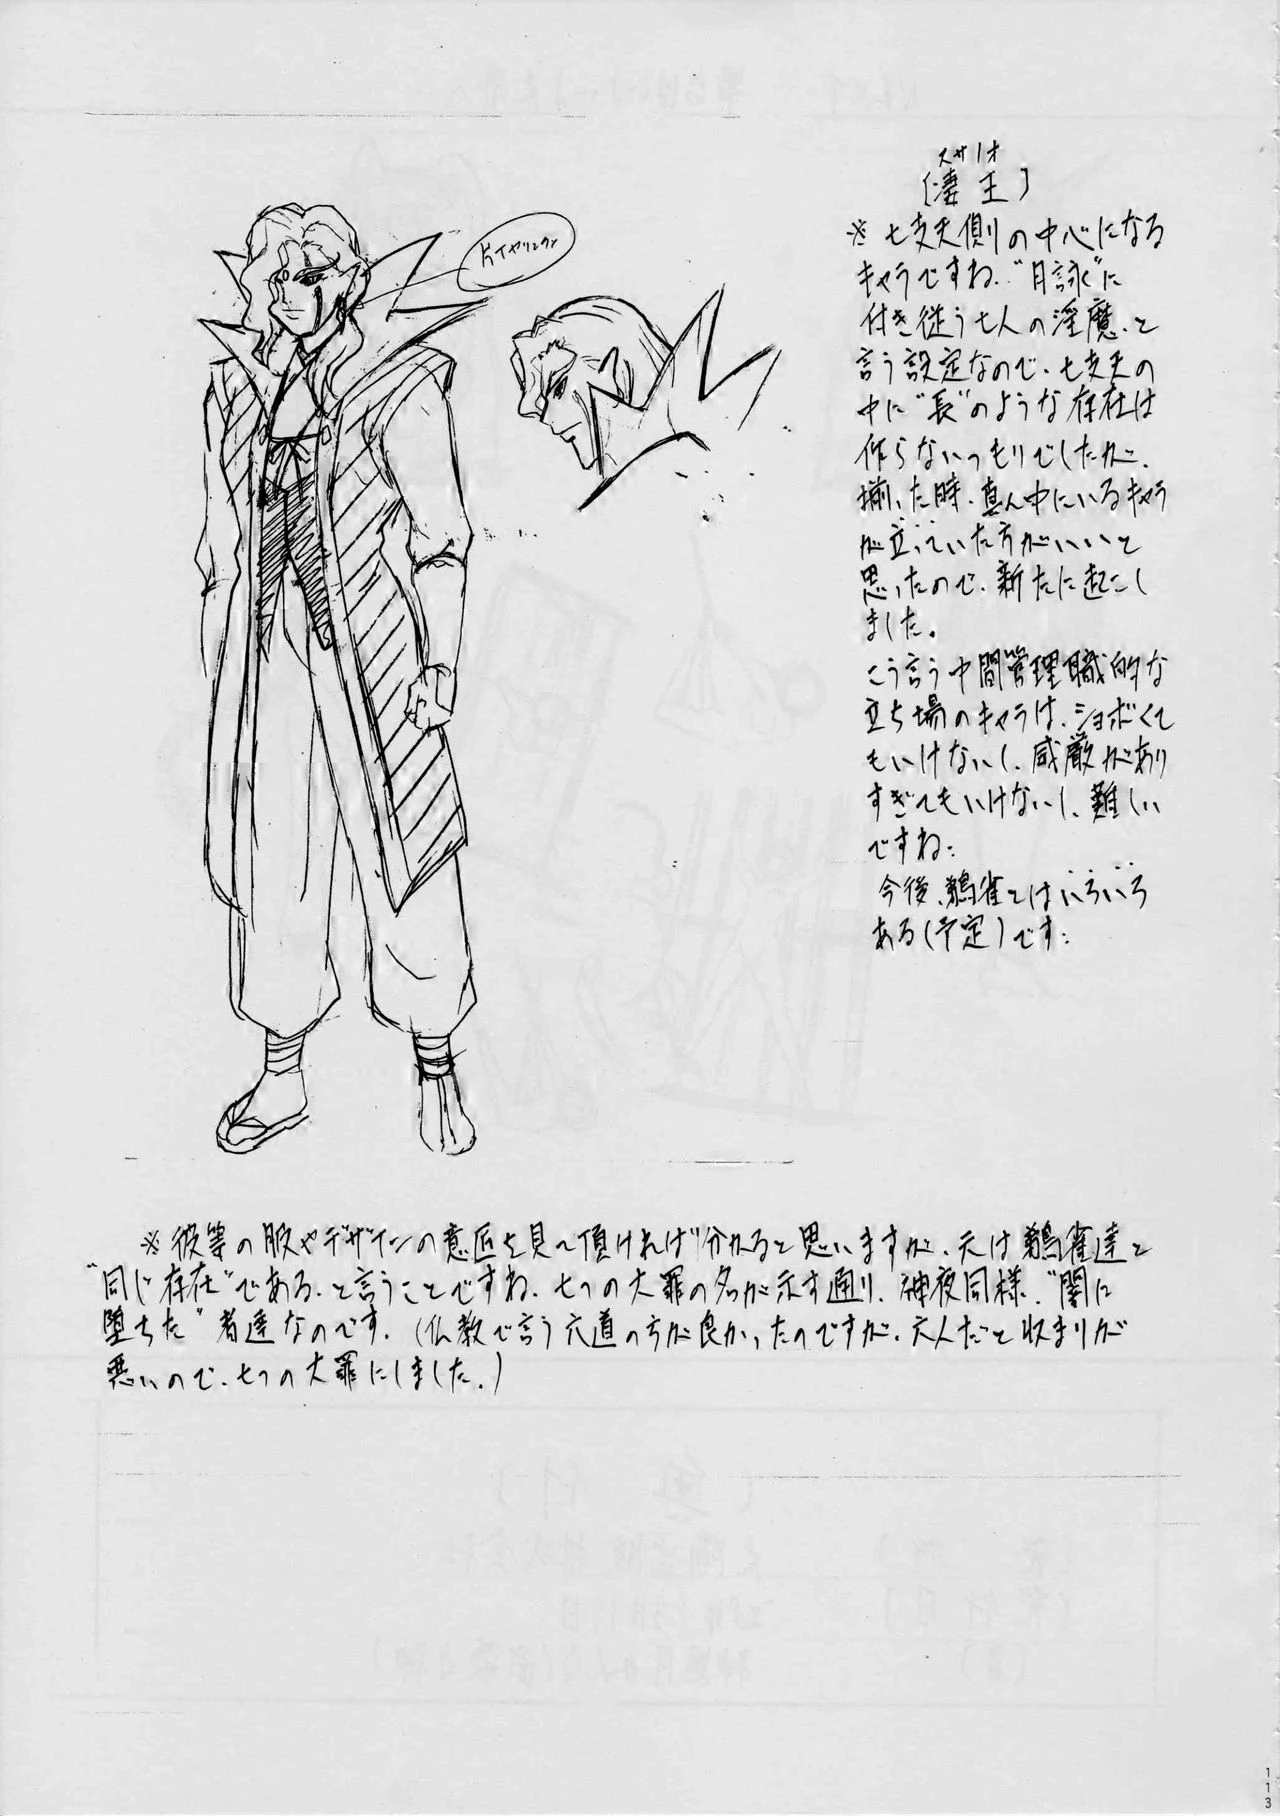 スサノオ
[凄王]
片イヤリング
※七支天側の中心になる
キャラですね。"月詠"に
付き従う七人の淫魔、と
言う設定なので、七支天の
中に"長"のような存在は
作らないつもりでしたが、
揃った時、真ん中にいるキャラ
が立っていた方がいいと
思ったので、新たに起こし
ました。
こう言う中間管理職的な
立ち場のキャラは、ショボくて
もいけないし、威厳があり
すぎてもいけないし、難しい
ですね…
今後、鵺雀とはいろいろ
ある(予定)です…
※彼等の服やデザインの意匠を見て頂ければ分かると思いますが、元は鵺雀達と
"同じ存在"である、と言うことですね。七つの大罪の名が示す通り、神夜同様、"闇に
堕ちた"者達なのです。(仏教で言う六道の方が良かったのですが、六人だと収まりが
悪いので、七つの大罪にしました。)
113